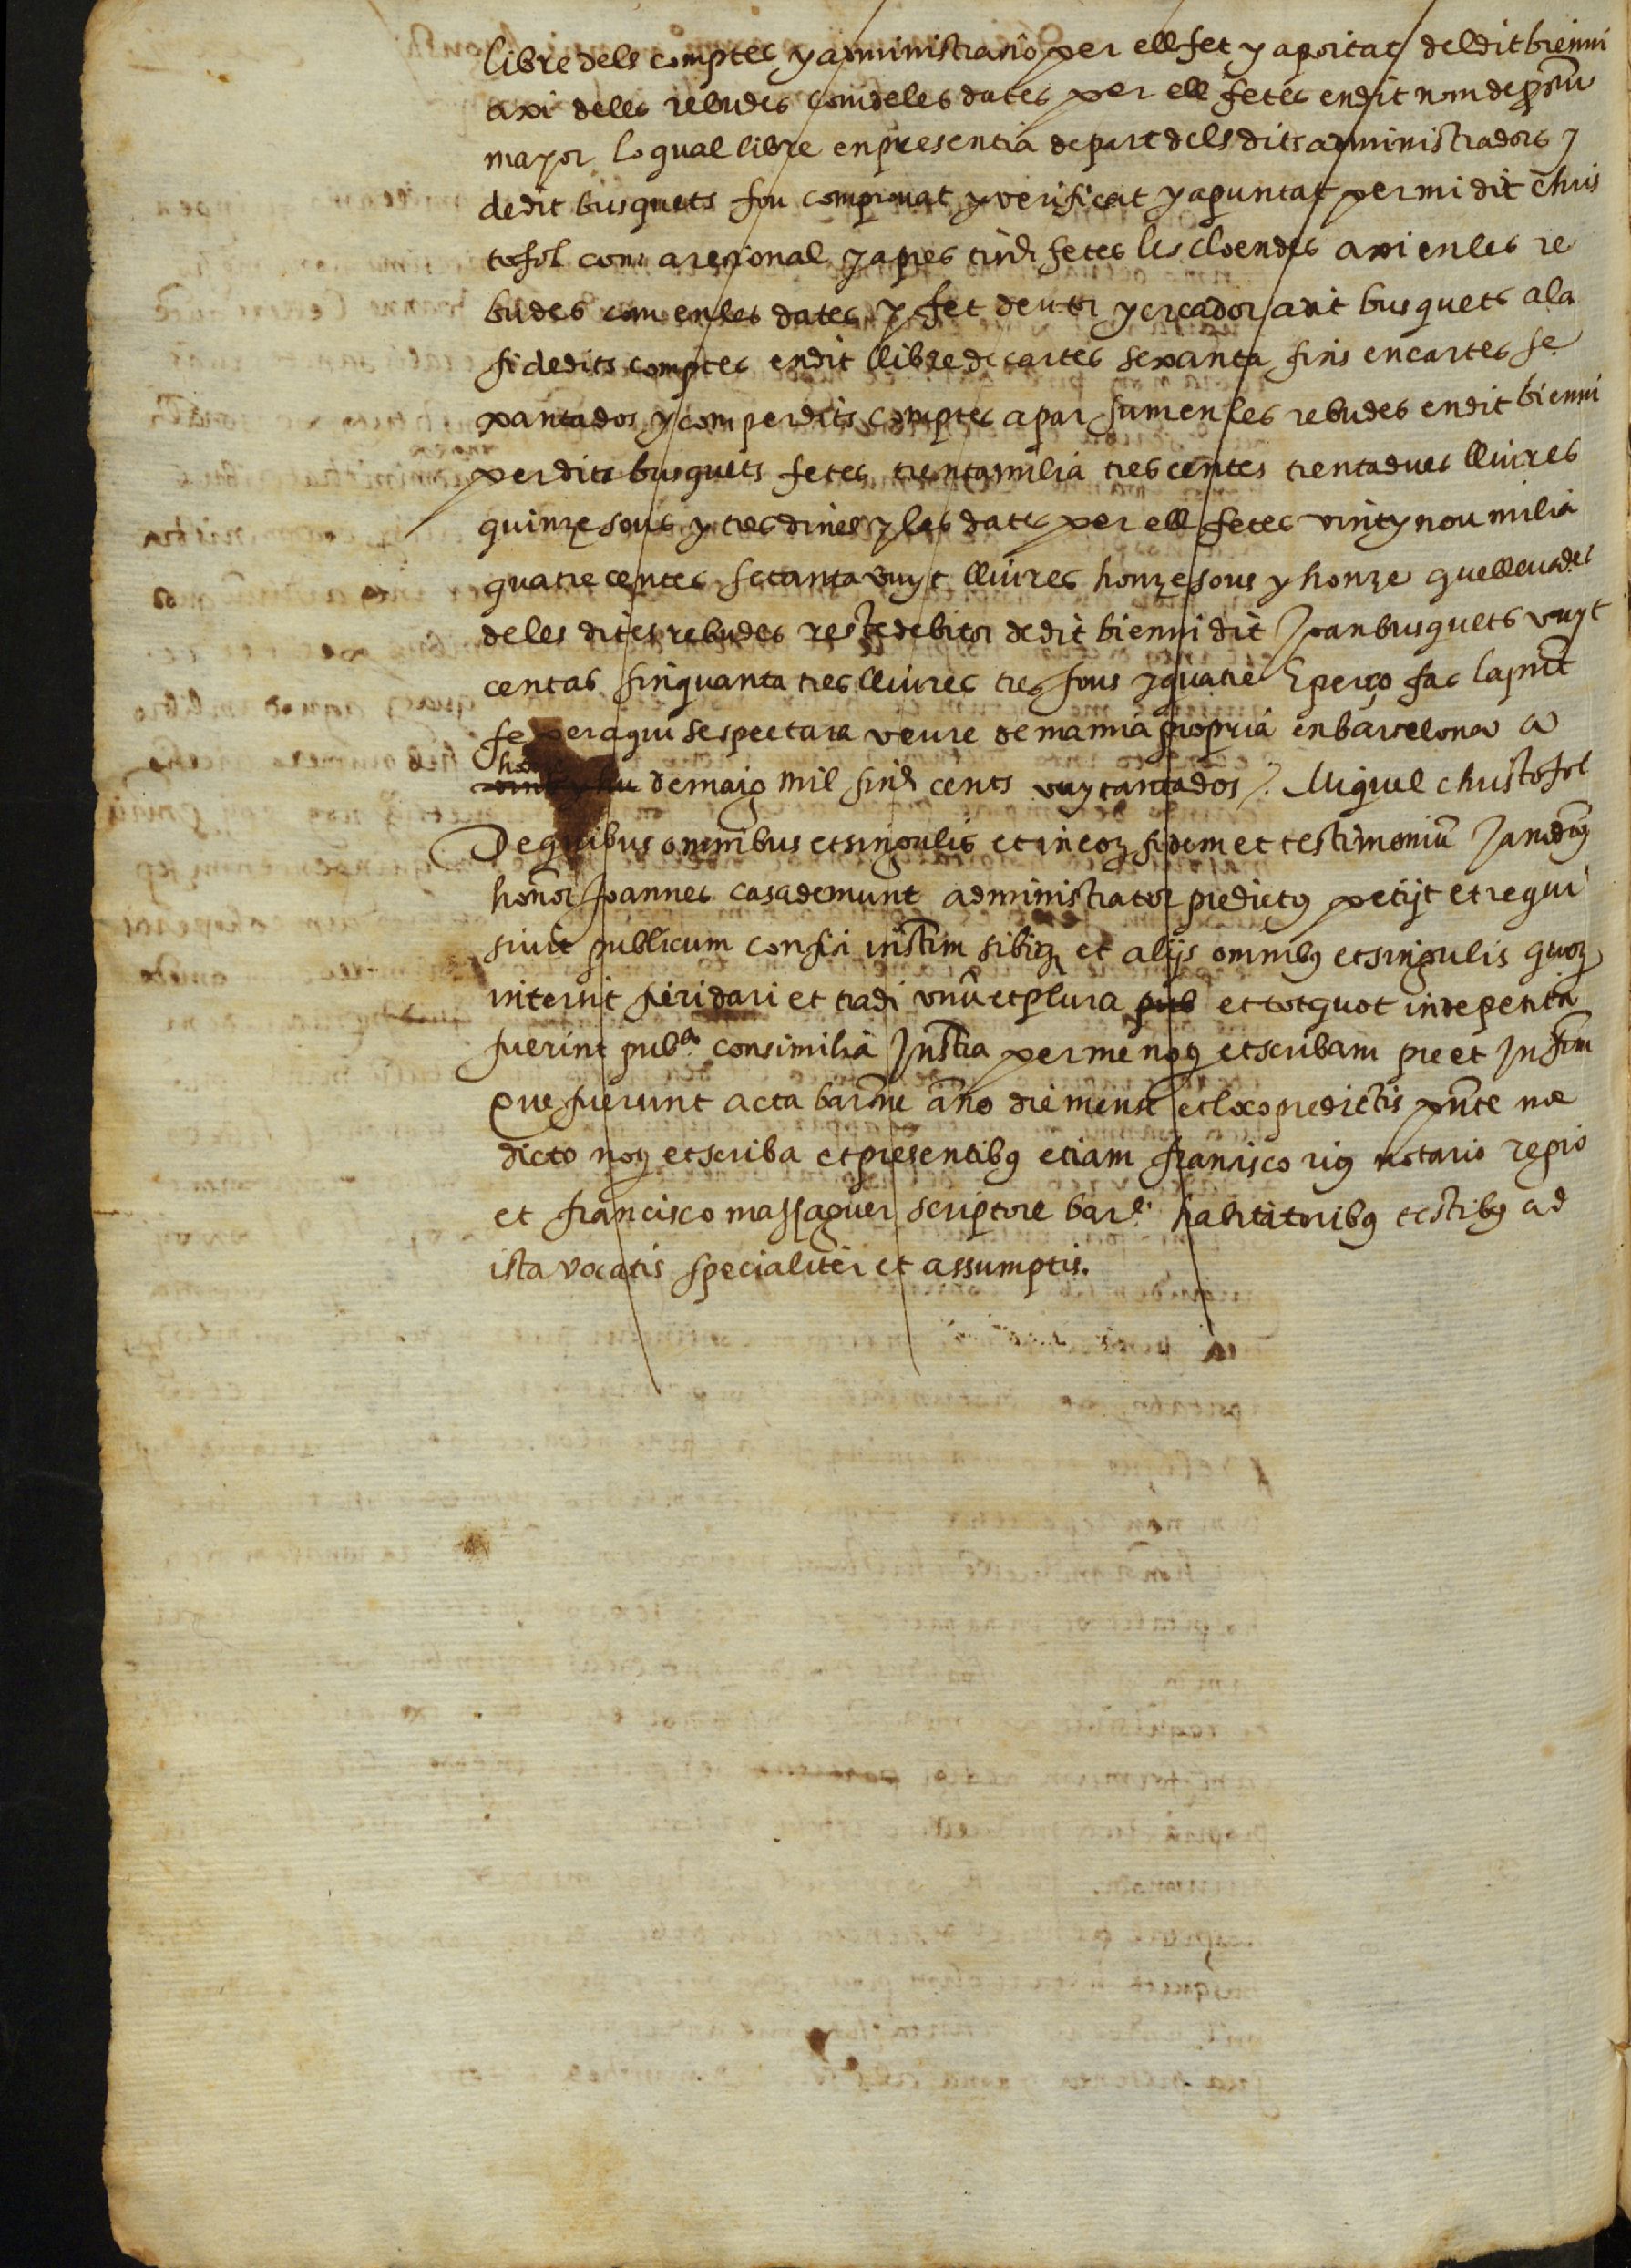 libre dels comptes y administratio per ell fet y aportat del dit bienni
axi deles rebudes com deles dates per ell fetes en dit nom de prior
major lo qual libre en presentia de part dels dits administradors y
de dit busquets fou comprouat y verificat y apuntat per mi dit chris
tofol com a rational y apres tinch fetes les cloendes axi en les re
budes com en les dates y fet deutor y creador a dit busquets ala
fi de dits comptes en dit llibre de cartes sexanta fins en cartes se
xantados y com per dits comptes apar sumen les rebudes en dit bienni
per dits busquets fetes trentamilia trescentes trentadues lliures
quinze sous y tres dines y les dates per ell fetes vint y nou milia
quatre centes setanta vuyt lliures honze sous y honze que lleuades
de les dites rebudes reste debitor de dit bienni dit Joan busquets vuyt
centas sinquanta tres lliures tres sous y quatre E perço fas la pnt
fe per a qui se spectara veure de ma mia propria en barcelona a
vint y hu de maig mil sinch cents vuytantados /. Miquel christofol
De quibus omnibus et singulis et in eorum fidem et testimoniu Jamdictus
honor Joannes casademunt administrator predictus petijt et requi
siuit publicum confici instrm sibique et alijs omnibus et singulis quorum
intersit fieri dari et tradi vnu et plura pub et tot quot inde petita
fuerint pubca consimilia Instra per me notm et scribam pre et Infrm
Que fuerunt acta barne anno die mense et loco predictis pnte me
dicto noto et scriba et presentibus etiam francisco rius notario regio
et francisco massaguer scriptore bare habitatoribus testibus ad
ista vocatis specialiter et assumptis.